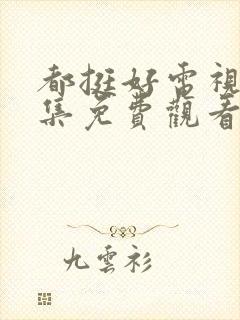 都挺好電視
集免費觀看
九雲衫